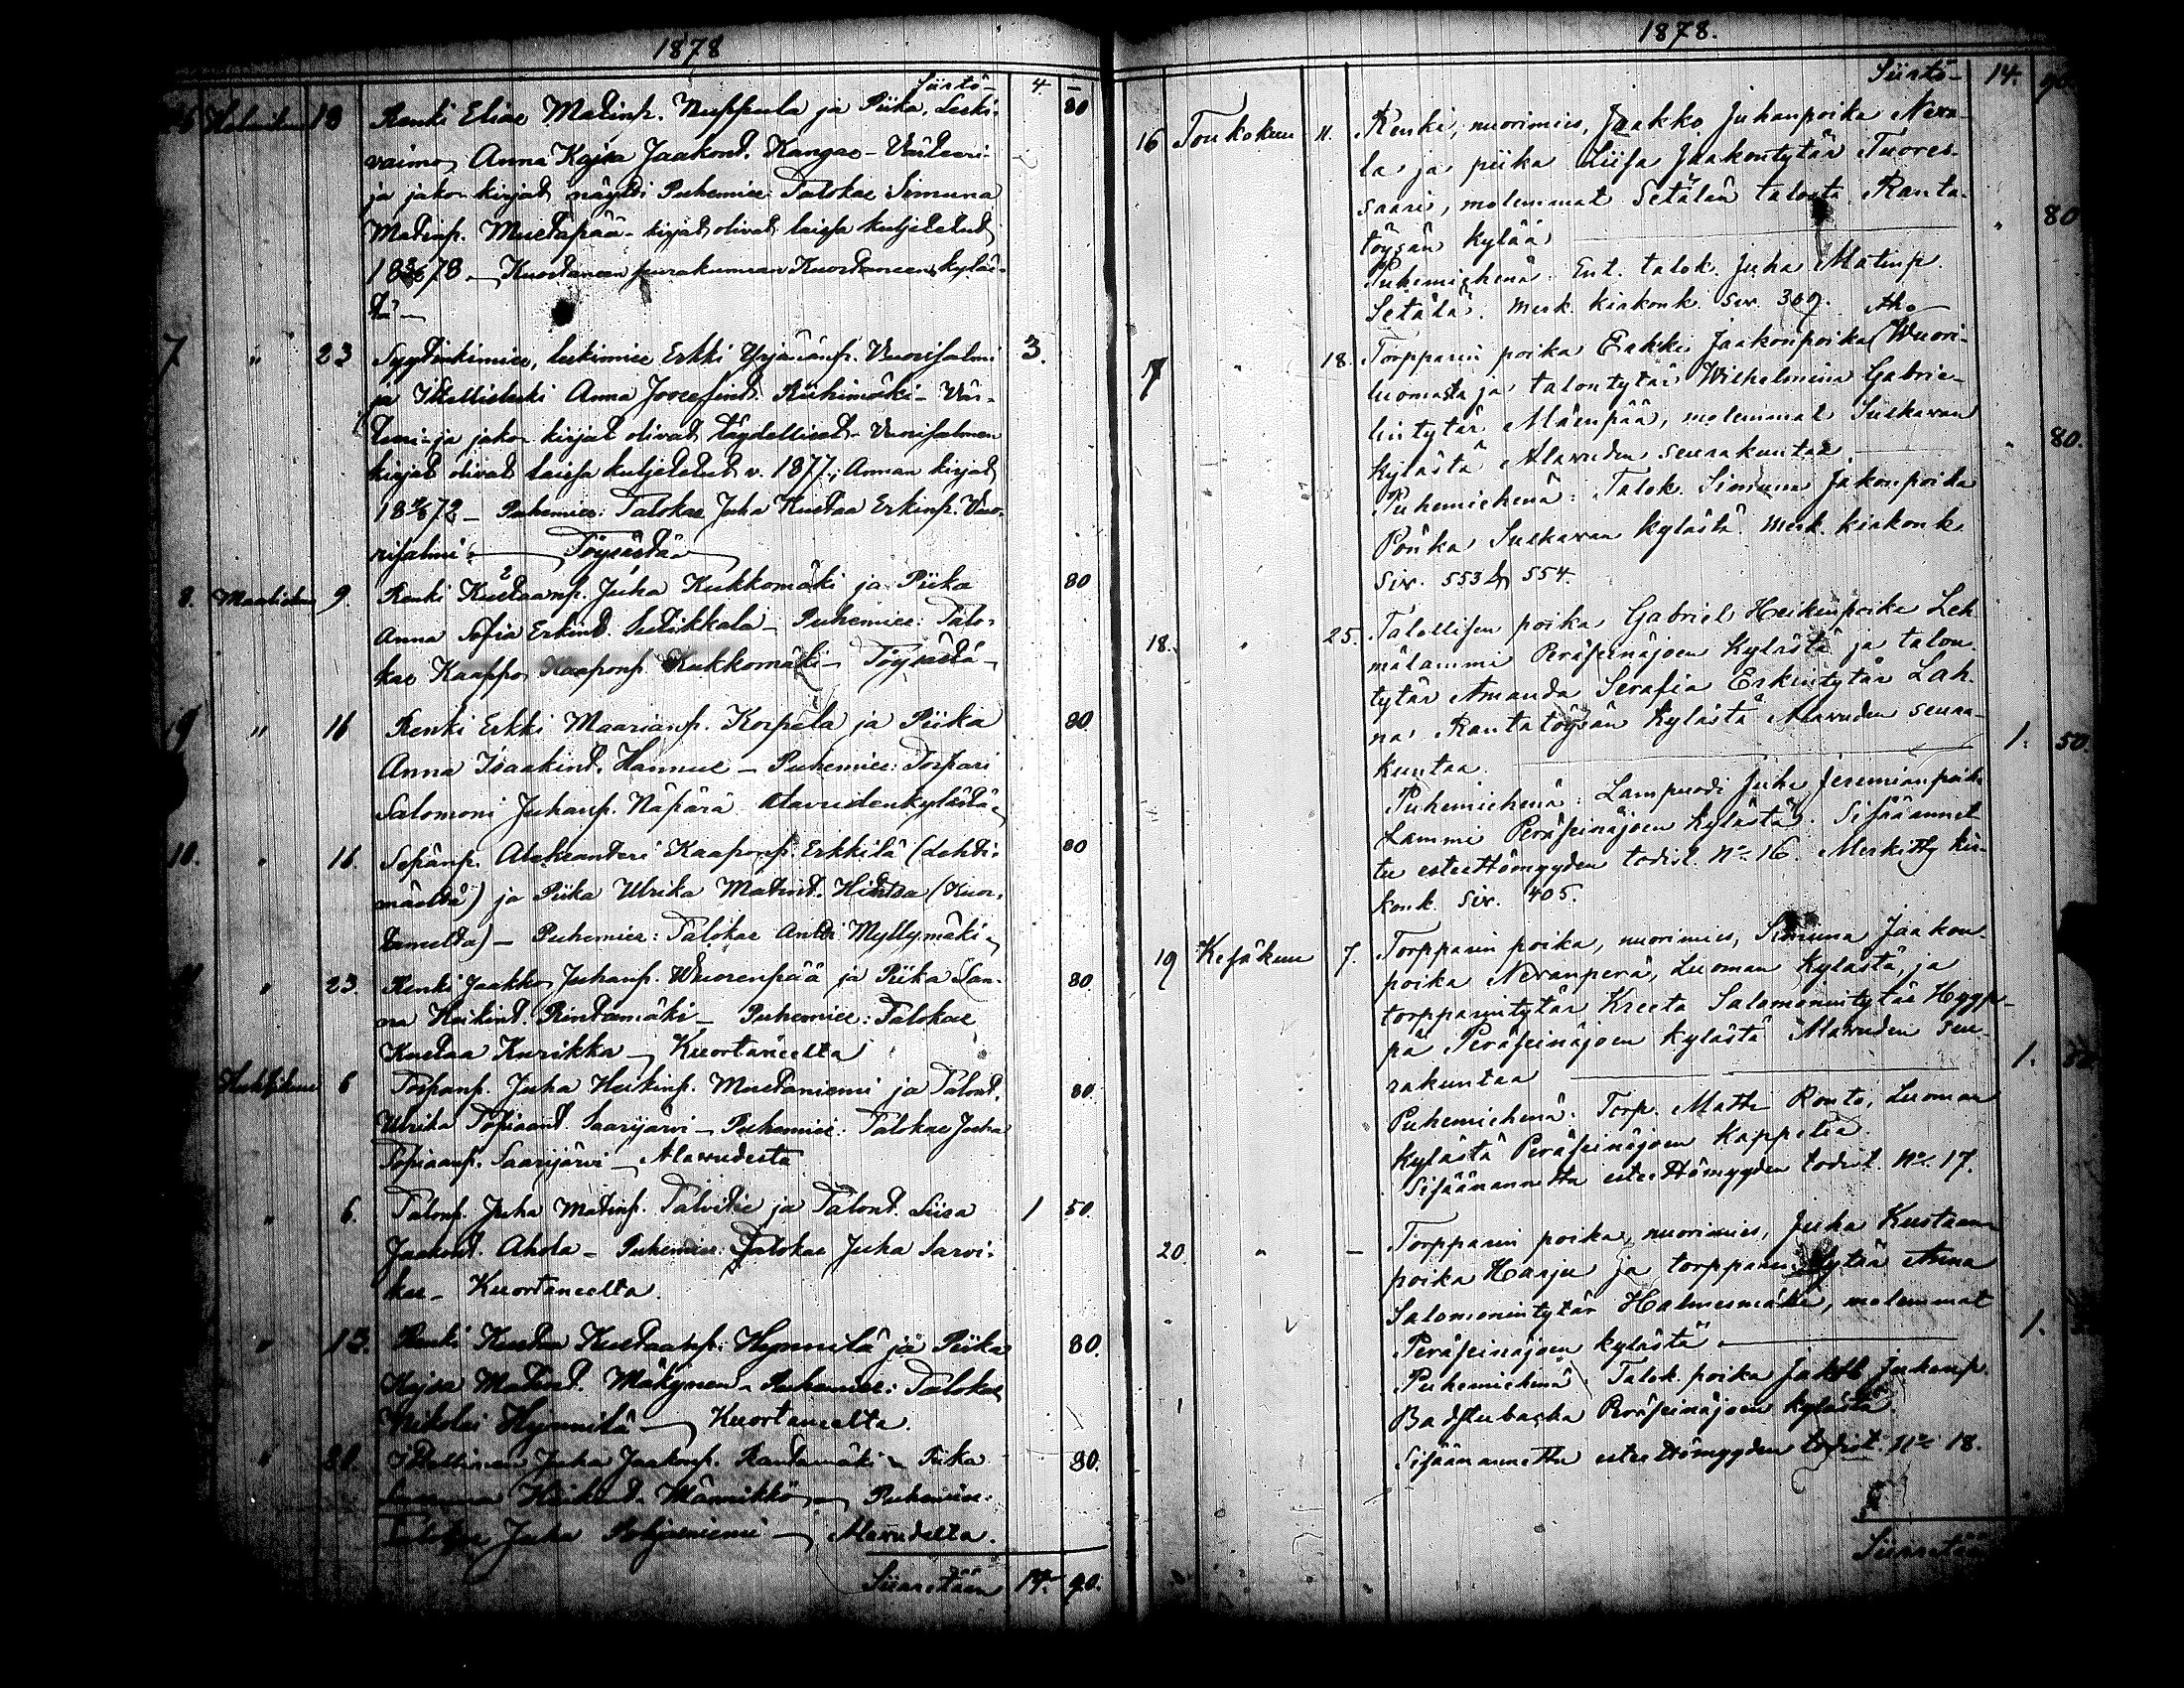 1878
Siirtö 4 —
6 Helmikuu 13 Renki Elias Matinp. Nuppula ja Piika, Leski- 80
vaimo, Anna Kajsa Jaakont. Kangas – Värteeri-
ja jako-kirjat näytti Puhemies: Talokas Simuna
Matinp. Mustapää – kirjat olivat laissa kuljetetut
78 – Kuortaneen seurakunnan Kuortaneen kyläs-
tä –
7 " 23 Syytinkimies, leskimies Erkki Yrjänänp. Vuorisalmi 3.
ja Itsellisleski Anna Josefint. Riihimäki – Vär-
teeri- ja jako-kirjat olivat täydelliset – Vuorisalmen
kirjat olivat laissa kuljetetut v. 1877; Annan kirjat
72 – Puhemies: Talokas Juha Kustaa Erkinp. Vuo-
risalmi – Töysästä
8. Maalisku 9. Renki Kustaanp. Juha Kukkomäki ja Piika 80
Anna Sofia Erkint. – Puhemies: Talo-
kas Kaappo Kaaponp. Kukkomäki – Töysästä –
9 " 16 Renki Erkki Maarianp. Korpela ja Piika 80
Anna Isaakint. Hannus – Puhemies: Torpari
Salomoni Juhanp. Näpärä Alavudenkylästä
10. " 16. Sepänp. Aleksanteri Kaaponp. Erkkilä (Lehti- 80
mäeltä) ja Piika Ulrika Matint. Hintsa (Kuor-
taneelta) – Puhemies: Talokas Antti Myllymäki
11 " 23. Renki Jaakko Juhanp. Wuorenpää ja Piika San- 80.
na Heikint. Rintamäki – Puhemies: Talokas
Kustaa Kurikka – Kuortaneelta
Huhtikuu 6 Torpanp. Juha Heikinp. Mustaniemi ja Talont. 80.
Ulrika Topiaant. Saarijärvi – Puhemies: Talokas Juha
Topiaanp. Saarijärvi – Alavudesta
" 6. Talonp. Juha Matinp. Talvitie ja Talont. Liisa 1 50.
Jaakont. Ahola – Puhemies: Talokas Juha Sarvi-
kas – Kuortaneelta.
" 13. Renki Kustaa Kustaanp. Hynnilä ja Piika 80.
Kajsa Matint. Mäkynen – Puhemies: Talokas
Nikolai Hynnilä – Kuortaneelta.
" 20. Itsellinen Juha Jaakonp. Rantamäki – Piika 80.
Heikint. Männikkö – Puhemies:
Talokas Juha Pohjaniemi – Alavudelta.
Siirretään 14. 90.
1878.
Siirtö 14. 90.
16 Toukokuu 11. Renki, nuorimies, Jaakko Juhanpoika Neva-
la ja piika Liisa Jaakontytär Tuores-
saari, molemmat Setälän talosta Ranta-
töysän kylää " 80
Puhemiehenä: Ent. talok. Juha Matinp.
Setälä. Merk. kirkonk. siv. 309.
7 " 18. Torpparin poika Erkki Jaakonpoika Aho (Wuori-
luomasta ja talontytär Wilhelmina Gabrie-
lintytär Mäenpää, molemmat Sulkavan
kylästä Alavuden seurakuntaa. " 80.
Puhemiehenä: Talok. Simuna Jakonpoika
Pouka Sulkavan kylästä. Merk. kirkonk.
Siv. 553 & 554.
18. " 25. Talollisen poika Gabriel Heikinpoika Leh-
mälammi Peräseinäjoen kylästä ja talon-
tytär Amanda Serafia Erkintytär Lah-
na Rantatöysän kylästä Alavuden seura-
kuntaa. 1. 50.
Puhemiehenä: Lampuodi Juha Jeremianpoika
Lammi Peräseinäjoen kylästä. Sisäännet
tu esteettömyyden todist. No 16. Merkitty kir-
konk. Siv. 405.
19 Kesäkuu 7. Torpparin poika, nuorimies, Simuna Jaakon-
poika Nevanperä, Luoman kylästä, ja
torpparintytär Kreeta Salomonintytär Hyyp-
pä Peräseinäjoen kylästä Alavuden seu-
rakuntaa 1. 50.
Puhemiehenä: Torp. Matti Ronto, Luoman
kylästä Peräseinäjoen Kappelia.
Sisäänannettu esteettömyyden todist. No. 17.
20. " — Torpparin poika, nuorimies, Juha Kustaan-
poika Harju ja torpparin tytär Anna
Salomonintytär Halmesmäki, molemmat
Peräseinäjoen kylästä 1.
Puhemiehenä: Talok. poika Jakob Juhanp.
Badstubacka Peräseinäjoen kylästä.
Sisäänannettu esteettömyyden todist. No 18.
Siirretään